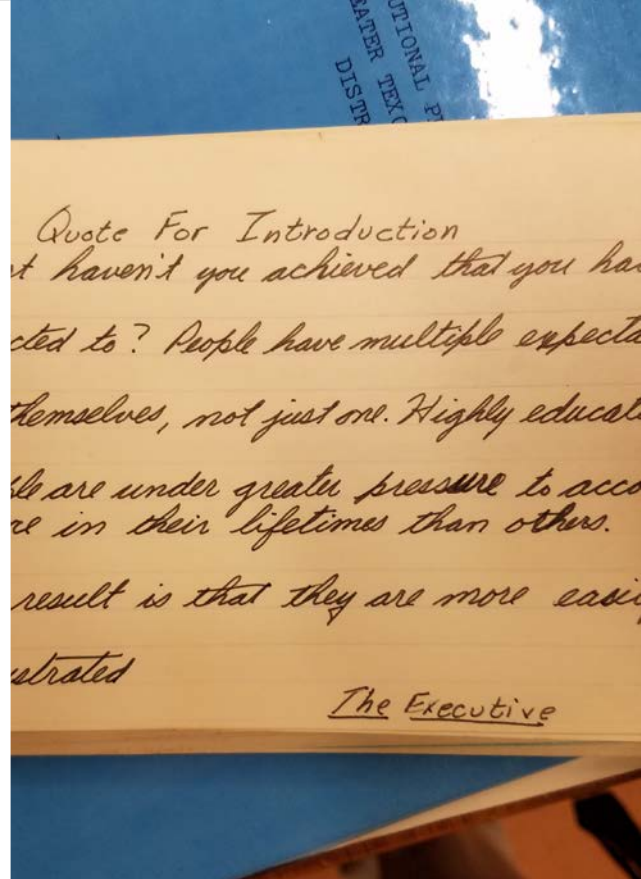 UTIONAL P
EATER TEXO
DISTR
Quote For Introduction
t haven't you achieved that you ha
cted to? People have multiple expecta
themselves, not just one. Highly educat
le are under greater pressure to acco
re in their lifetimes than others.
result is that they are more easi
strated
The Executive